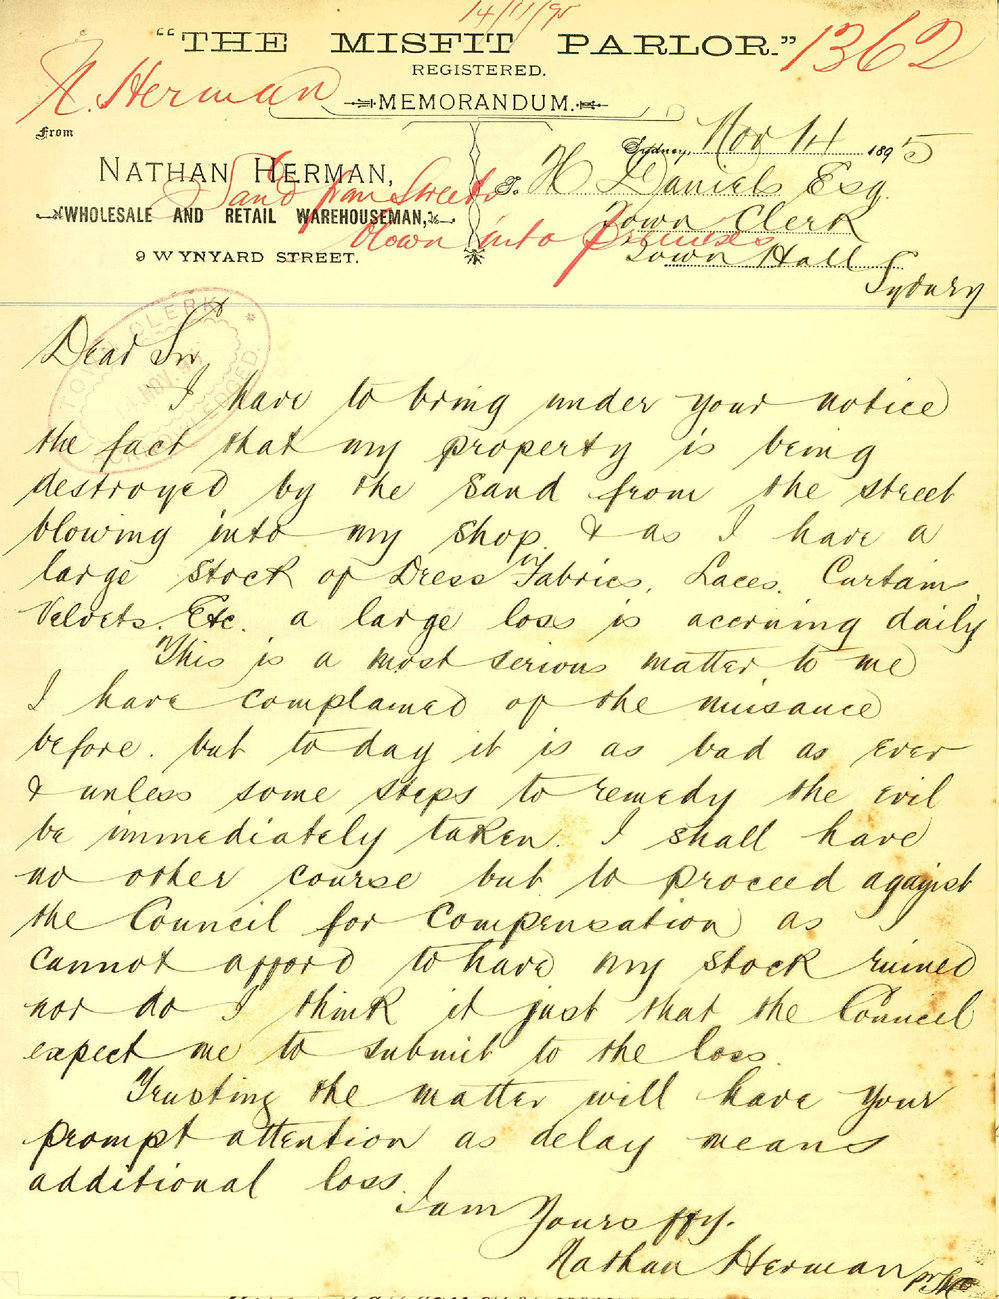 14/11/95
"THE MISFIT PARLOR."
1362
REGISTERED.
N. Herman
MEMORANDUM.
From
Sydney, Nov 14 1895
NATHAN HERMAN,
To H Daniels Esq.
Sand from Streets
WHOLESALE AND RETAIL WAREHOUSEMAN,
Town Clerk
blown into premises
9 WYNYARD STREET.
Town Hall
Sydney
TOWN CLERK
14 NOV. 95
ACKNOWLEDGED.
Dear Sir
I have to bring under your notice
the fact that my property is being
destroyed by the sand from the street
blowing into my shop. & as I have a
large stock of Dress Fabrics, Laces. Curtains
Velvets. Etc. a large loss is accruing daily
This is a most serious matter to me
I have complained of the nuisance
before. but to day it is as bad as ever
& unless some steps to remedy the evil
be immediately taken. I shall have
no other course but to proceed against
the Council for Compensation as
cannot afford to have my stock ruined
nor do I think it just that the Council
expect me to submit to the loss.
Trusting the matter will have your
prompt attention as delay means
additional loss.
I am
Yours ffy.
Nathan Herman